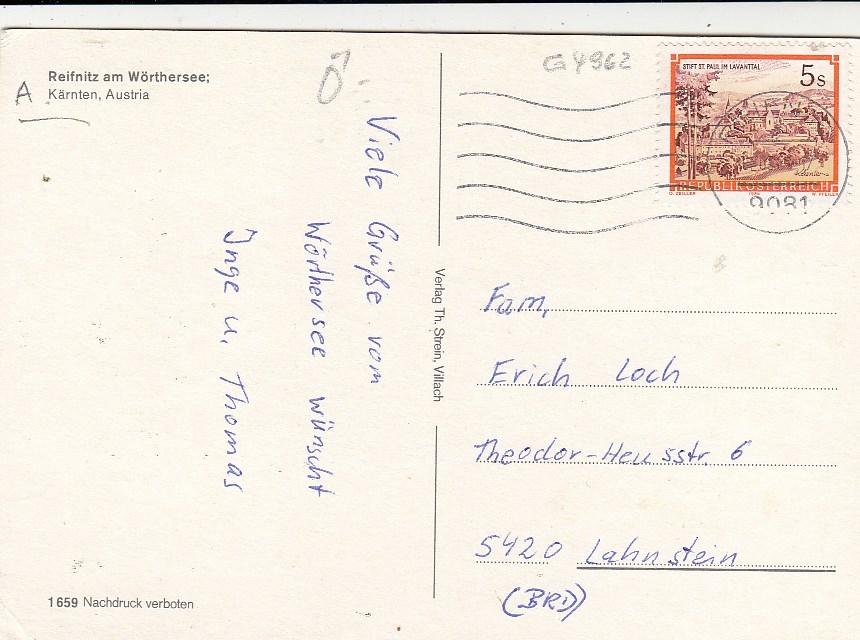 Reifnitz am Wörthersee;
Kärnten, Austria
A
Ö-
Viele Grüße vom
Wörthersee wünscht
Inge u. Thomas
1659 Nachdruck verboten
Verlag Th. Strein, Villach
G4962
STIFT ST. PAUL IM LAVANTTAL
5s
REPUBLIK ÖSTERREICH
9081
Fam,
Erich Loch
Theodor-Heusstr. 6
5420 Lahnstein
(BRD)